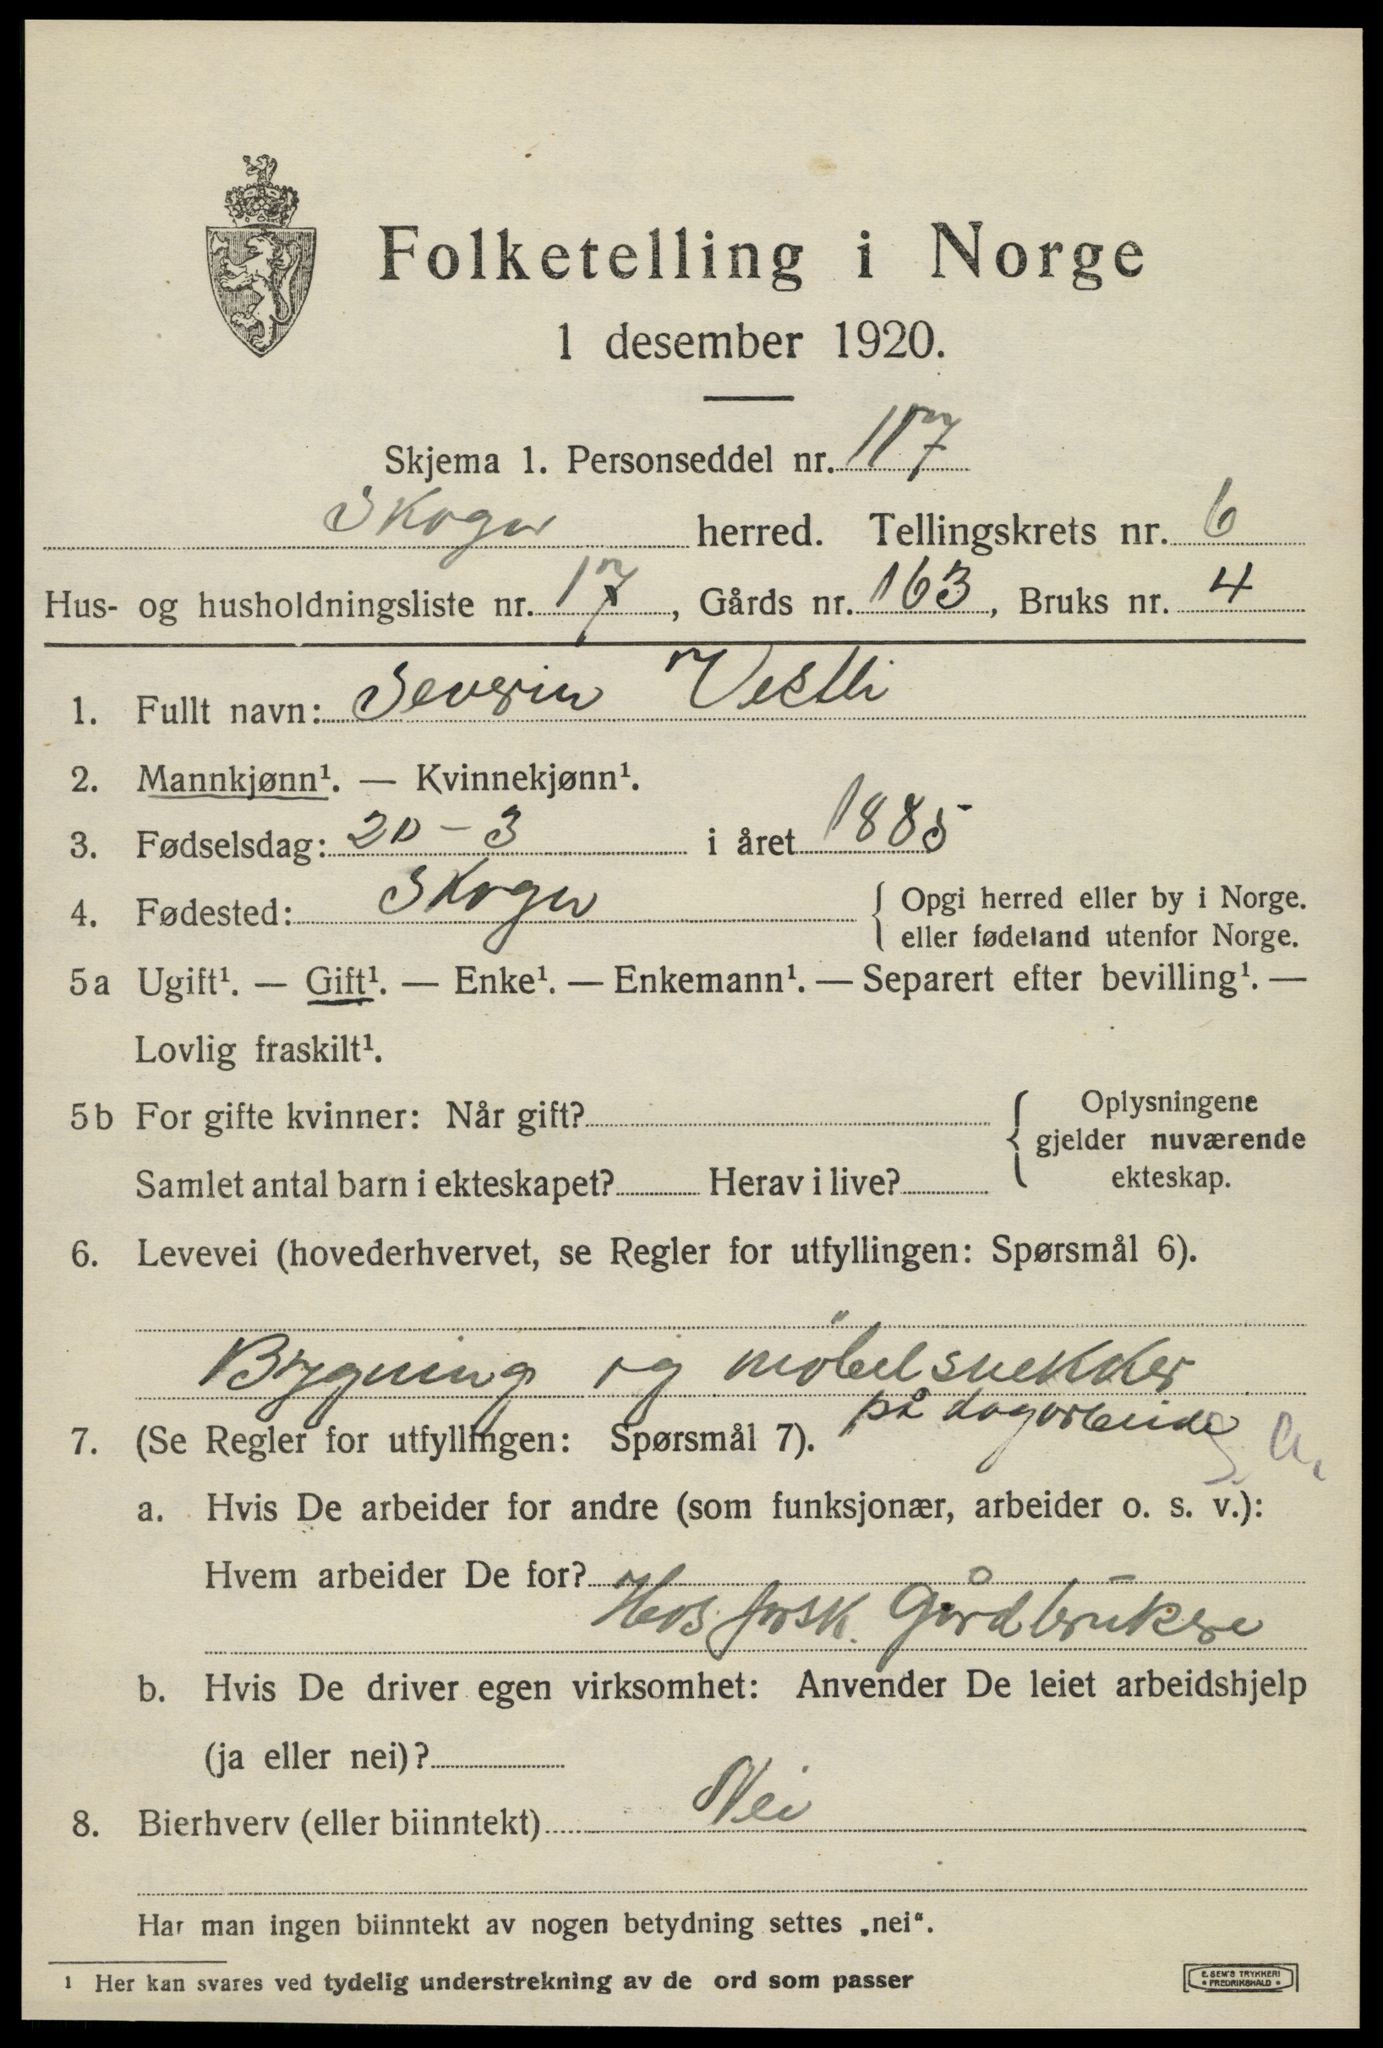 Folketelling i Norge
1 desember 1920.
Skjema 1. Personseddel nr. 117
Skoger herred. Tellingskrets nr. 6
Hus- og husholdningsliste nr. 17, Gårds nr. 163, Bruks nr. 4
1. Fullt navn: Severin Vestli
2. Mannkjønn¹. — Kvinnekjønn¹.
3. Fødselsdag: 20 - 3 i året 1885
4. Fødested: Skoger { Opgi herred eller by i Norge.
eller fødeland utenfor Norge.
5a Ugift¹. — Gift¹. — Enke¹. — Enkemann¹. — Separert efter bevilling¹. —
Lovlig fraskilt¹.
5b For gifte kvinner: Når gift? { Oplysningene
gjelder nuværende
Samlet antal barn i ekteskapet? Herav i live? ekteskap.
6. Levevei (hovederhvervet, se Regler for utfyllingen: Spørsmål 6).
Bygning og møbelsnekker
på dagarbeide
7. (Se Regler for utfyllingen: Spørsmål 7).
a. Hvis De arbeider for andre (som funksjonær, arbeider o. s. v.):
Hvem arbeider De for?
Hos forsk. Gårdbrukere
b. Hvis De driver egen virksomhet: Anvender De leiet arbeidshjelp
(ja eller nei)?
8. Bierhverv (eller biinntekt) Nei
Har man ingen biinntekt av nogen betydning settes „nei“.
¹ Her kan svares ved tydelig understrekning av de ord som passer
E. SEM'S TRYKKERI
FREDRIKSHALD